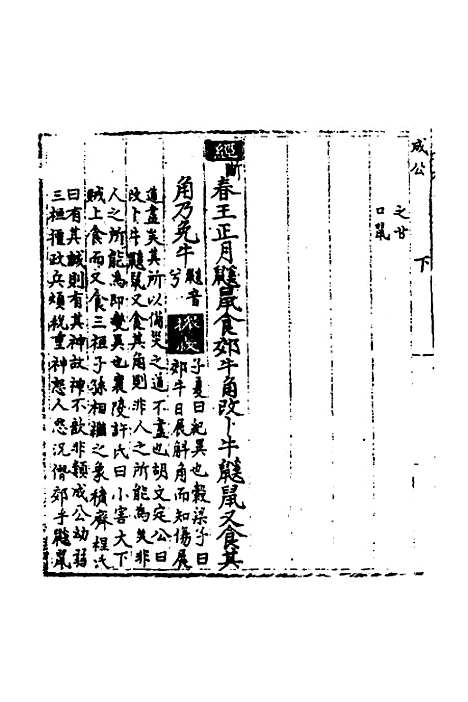 成公 下
之甘
口鼠
經
斷
春王正月鼷鼠食郊牛角改卜牛鼷鼠又食其
角乃免牛 兮 鼷音
子夏曰紀異也穀梁子曰
郊牛日展斛角而知傷展
道盡矣其所以備災之道不盡也胡文定公曰
改卜牛鼷鼠又食其角則非人之所能為矣非
人之所能為即變異也襄陵許氏曰小害大下
賊上食而又食三桓子孫相繼之象積齋程氏
曰有其誠則有其神故神不歆非類成公幼弱
三桓擅政兵煩稅重神怒人怨況僭郊乎鼷鼠